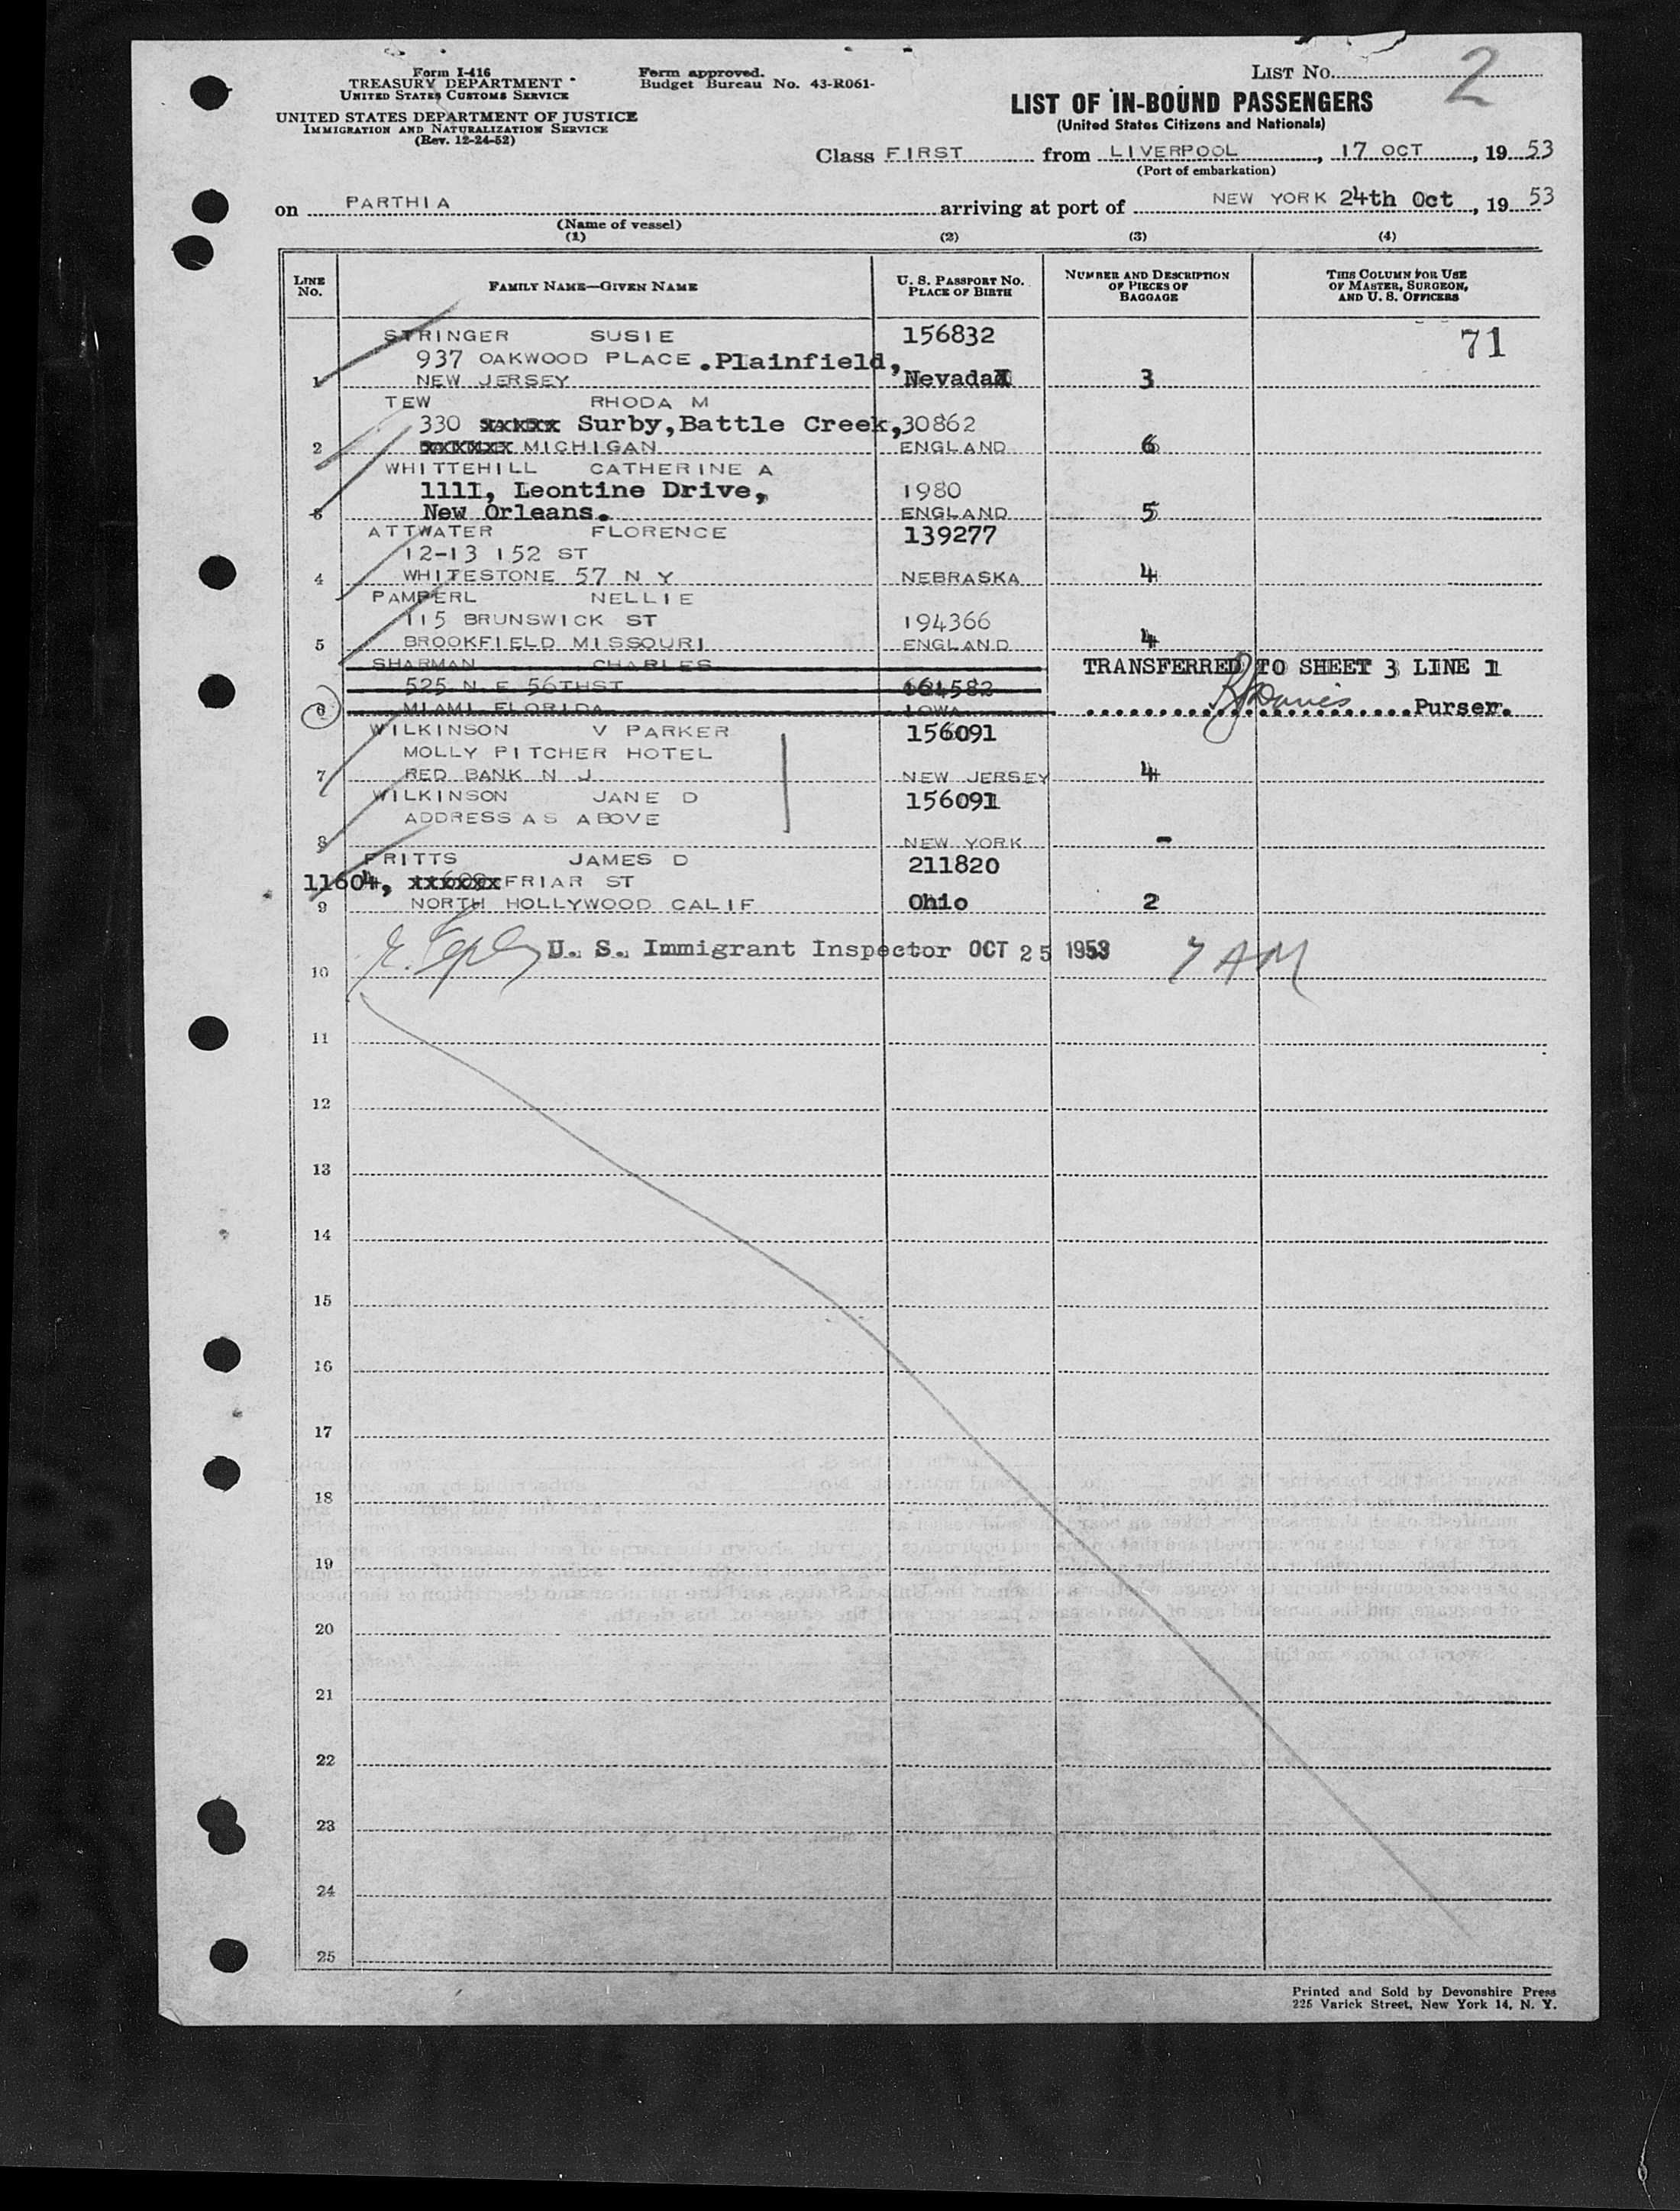 Form I-416
TREASURY DEPARTMENT
UNITED STATES CUSTOMS SERVICE
UNITED STATES DEPARTMENT OF JUSTICE
IMMIGRATION AND NATURALIZATION SERVICE
(Rev. 12-24-52)
Form approved.
Budget Bureau No. 43-R061-
LIST No. 2
LIST OF IN-BOUND PASSENGERS
(United States Citizens and Nationals)
Class FIRST from LIVERPOOL, 17 OCT, 19 53
(Port of embarkation)
on PARTHIA arriving at port of NEW YORK 24th Oct, 19 53
(Name of vessel)
(1) (2) (3) (4)
LINE No. FAMILY NAME—GIVEN NAME U. S. PASSPORT No. PLACE OF BIRTH NUMBER AND DESCRIPTION OF PIECES OF BAGGAGE THIS COLUMN FOR USE OF MASTER, SURGEON, AND U. S. OFFICERS
STRINGER SUSIE 156832 71
937 OAKWOOD PLACE .Plainfield,
1 NEW JERSEY Nevada 3
TEW RHODA M
330 Surby,Battle Creek, 30862
2 MICHIGAN ENGLAND 6
WHITTEHILL CATHERINE A
1111, Leontine Drive, 1980
3 New Orleans. ENGLAND 5
ATTWATER FLORENCE 139277
12-13 152 ST
4 WHITESTONE 57 N Y NEBRASKA 4
PAMPERL NELLIE
115 BRUNSWICK ST 194366
5 BROOKFIELD MISSOURI ENGLAND 4
SHARMAN CHARLES TRANSFERRED TO SHEET 3 LINE 1
525 N E 56THST
6 MIAMI FLORIDA IOWA Purser.
WILKINSON V PARKER 156091
MOLLY PITCHER HOTEL
7 RED BANK N J NEW JERSEY 4
WILKINSON JANE D 156091
ADDRESS AS ABOVE
8 NEW YORK -
FRITTS JAMES D 211820
11604, FRIAR ST
9 NORTH HOLLYWOOD CALIF Ohio 2
U. S. Immigrant Inspector OCT 25 1953 7 AM
10
11
12
13
14
15
16
17
18
19
20
21
22
23
24
25
Printed and Sold by Devonshire Press
225 Varick Street, New York 14, N. Y.